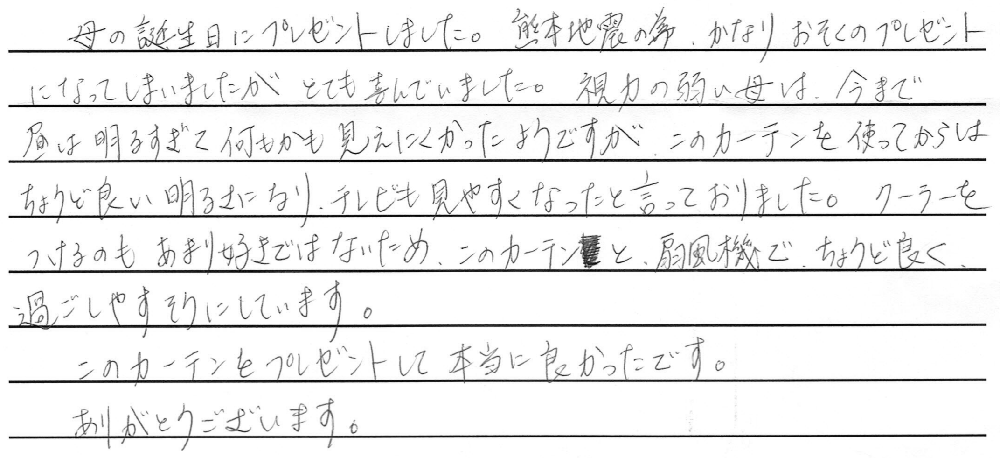 母の誕生日にプレゼントしました。熊本地震の為、かなりおそくのプレゼント
になってしまいましたがとても喜んでいました。視力の弱い母は、今まで
昼は明るすぎて何もかも見えにくかったようですが、このカーテンを使ってからは
ちょうど良い明るさになり、テレビも見やすくなったと言っておりました。クーラーを
つけるのもあまり好きではないため、このカーテンと、扇風機で、ちょうど良く、
過ごしやすそうにしています。
このカーテンをプレゼントして本当に良かったです。
ありがとうございます。